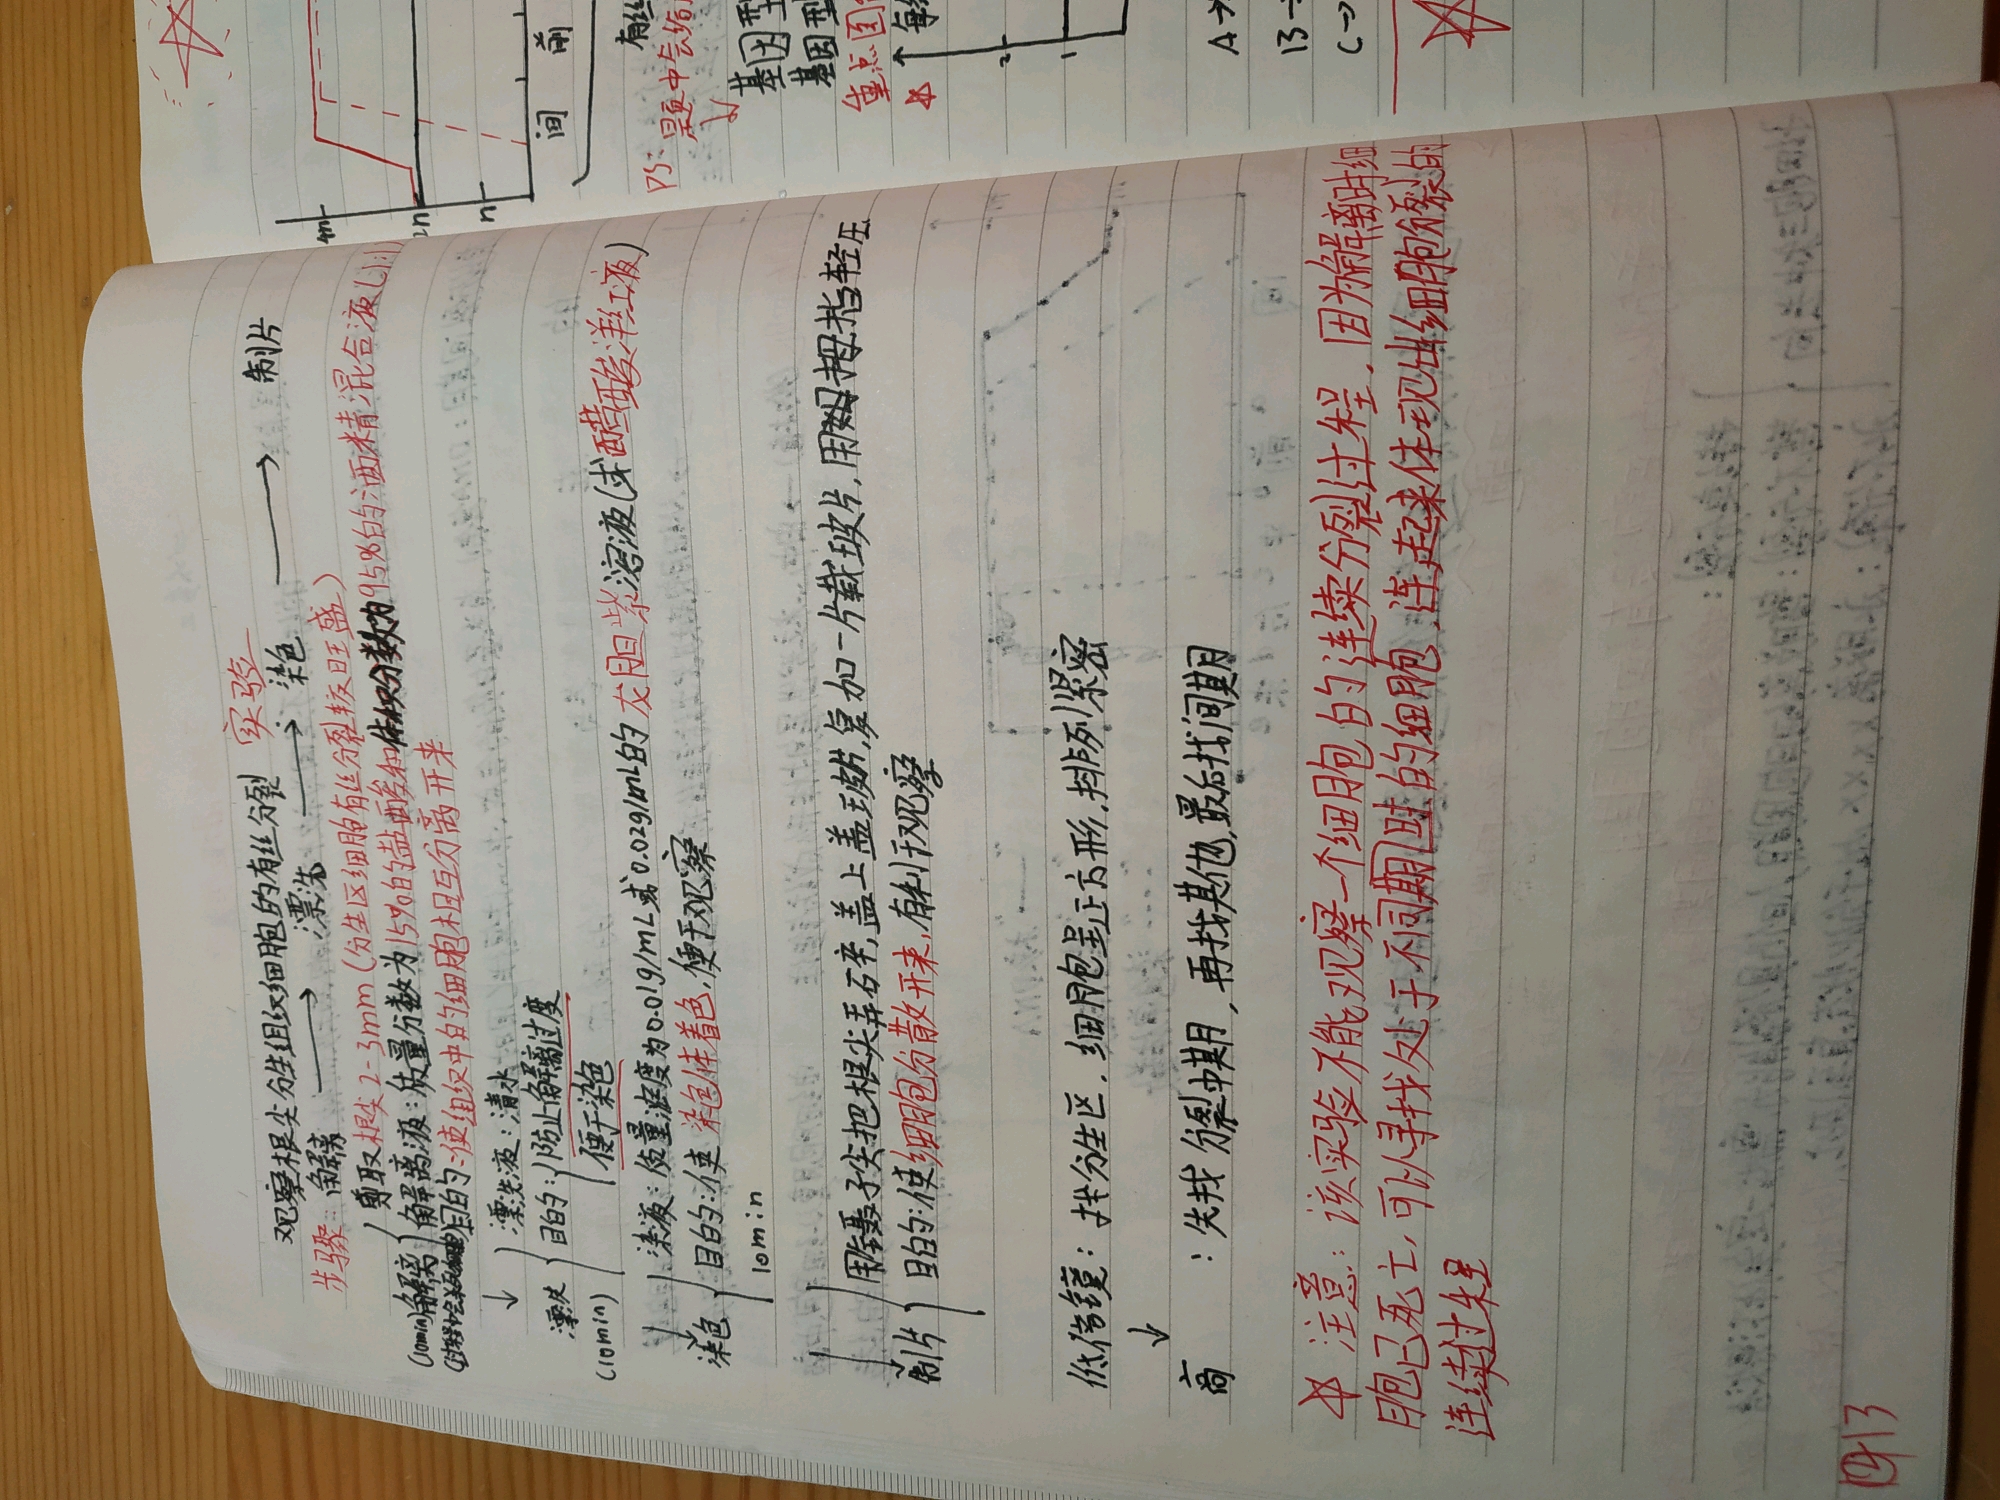 观察根尖分生组织细胞的有丝分裂 实验
步骤：解离 → 漂洗 → 染色 → 制片
剪取根尖2-3mm（分生区细胞有丝分裂较旺盛）
(10min)解离 解离液：质量分数为15%的盐酸和体积分数为95%的酒精混合液(1:1)
目的：使组织中的细胞相互分离开来
↓ 漂洗液：清水
漂洗 目的：防止解离过度
(10min) 便于染色
染液：质量浓度为0.01g/mL或0.02g/mL的龙胆紫溶液(或醋酸洋红液)
染色 目的：使染色体着色，便于观察
10min
用镊子尖把根尖弄碎，盖上盖玻片，复加一片载玻片，用拇指轻压
制片 目的：使细胞分散开来，有利于观察
低倍镜：找分生区，细胞呈正方形，排列紧密
↓
高 ：先找分裂中期，再找其他，最后找间期
☆ 注意：该实验不能观察一个细胞的连续分裂过程，因为解离时细
胞已死亡，可以寻找处于不同期时的细胞，连起来体现出细胞分裂的
连续过程
413
4n
2n
n
间 前
有丝
PS：题中会给
基因型
基因型
重点图
☆ ↑ 每
2
1
A→
B→
C→